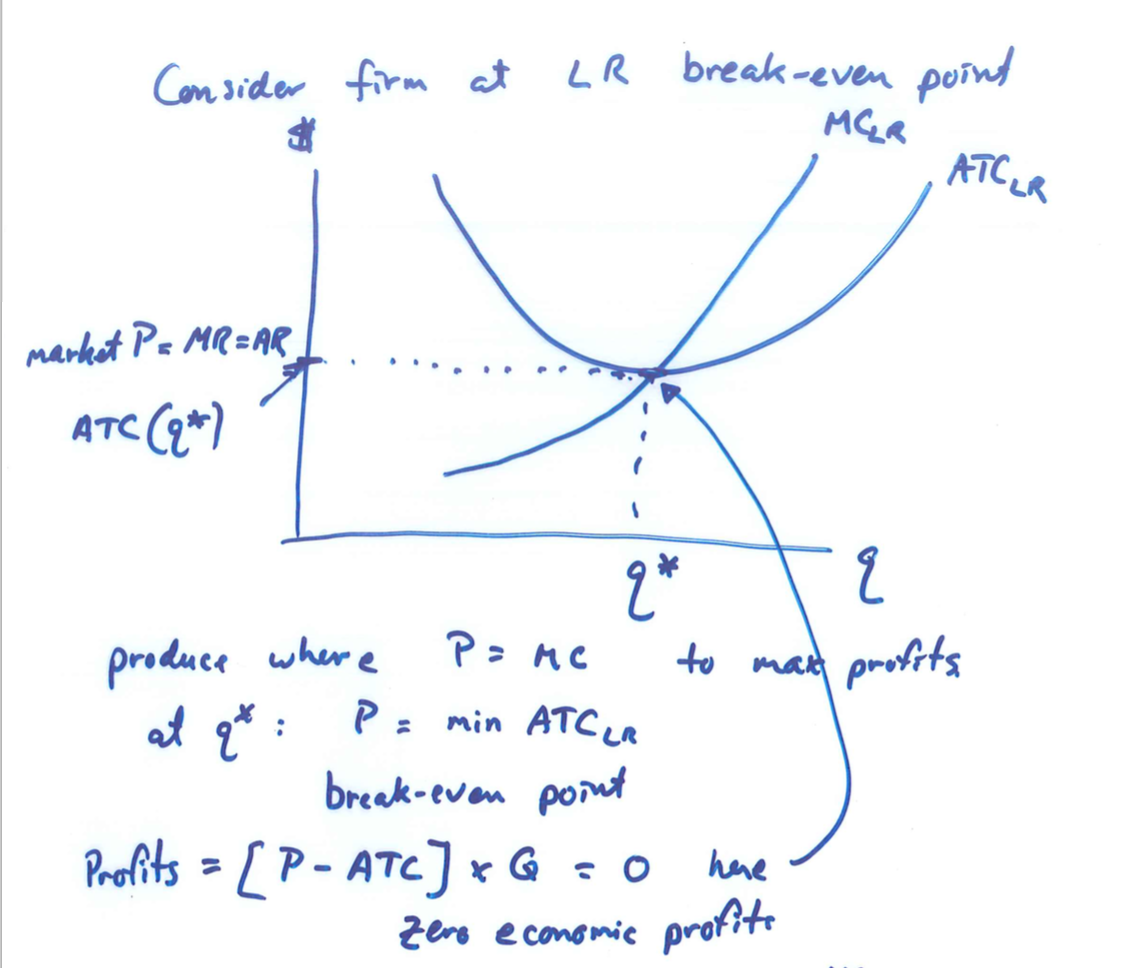 Consider firm at LR break-even point
$
MC LR
ATC LR
market P = MR = AR
ATC (q*)
q*
q
produce where P = MC to max profits
at q* : P = min ATC LR
break-even point
Profits = [P - ATC] x Q = 0 here
zero economic profits